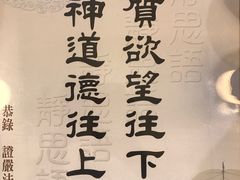 質欲望往下
神道德往上
恭錄 證嚴法
靜思語
靜思語